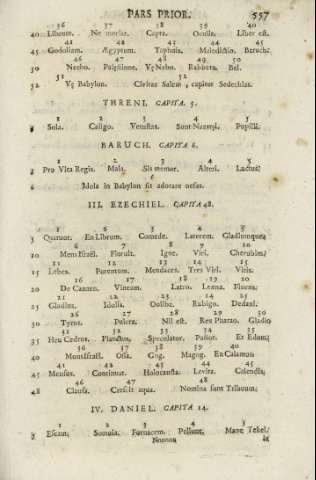 PARS PRIOR. 557
36 37 38 39 40
40 Libentt. Ne moriar. Capta. Oculis. Liber est.
41 42 43 44 45
45 Godoliam. Ægyptum. Taphnis. Maledictio. Baruch.
46 47 48 49 50
50 Necho. Palestinæ. Væ Nabo. Rabbata. Bel.
51 52
52 Væ Babylon. Civitas capitur Sedechias.
THRENI. CAPITA. 5.
1 2 3 4 5
5 Sola. Caligo. Vetustas. Sunt Nazaræi. Pupilli.
BARUCH. CAPITA 6.
1 2 3 4 5
5 Pro Vita Regis. Mala. Sis memor. Alteri. Luctus.
6
6 Idola in Babylon sit adorare nefas.
III. EZECHIEL. CAPITA 48.
1 2 3 4 5
5 Quatuor. En Librum. Comede. Laterem. Gladiumque,
6 7 8 9 10
10 Mons Israël. Floruit. Igne. Viri. Cherubim.
11 12 13 14 15
15 Lebes. Parentum. Mendaces. Tres Viri. Vitis.
16 17 18 19 20
20 De Canaen. Vineam. Latro. Leæna. Flores.
21 22 23 24 25
25 Gladius. Idola. Ooliba. Rubigo. Dedan.
26 27 28 29 30
30 Tyrus. Nil est. Rex Pharao. Gladio
31 32 33 34 35
35 Heu Cedrus. Planctus, Speculator. Pastor. Et Edom;
36 37 38 39 40
40 Mons Israël. Ossa. Gog. Magog. En Calamus.
41 42 43 44 45
45 Mensus. Continuit. Holocausta. Levita. Calendis.
46 47 48
48 Clausa. Crescit aqua. Nomina sunt Tribuum.
IV. DANIEL. CAPITA 14.
1 2 3 4 5
5 Escam. Somnia. Fornacem. Pellunt. Mane Tekel.